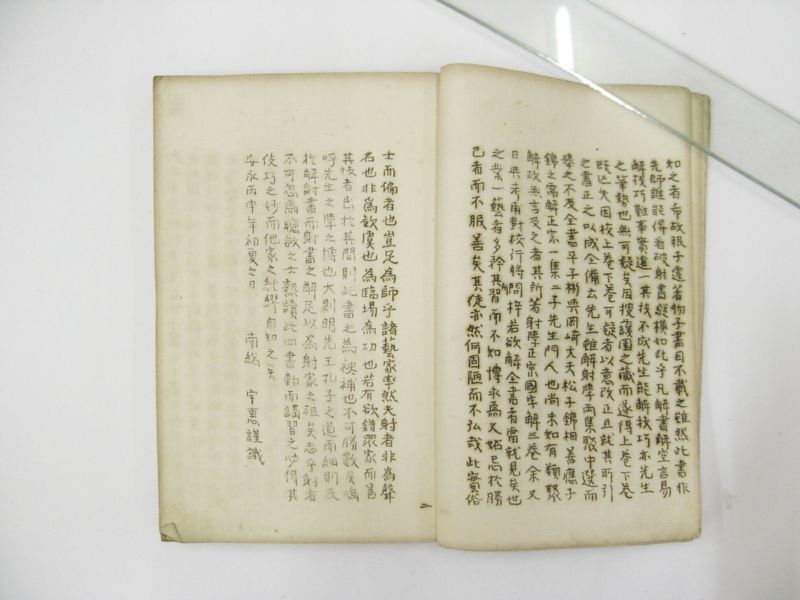 知之者希故服子遷著物子書目不載之雖然此書非
先師誰能得看破射書縱橫如此乎凡解書解空言易
解技巧難事實進一其技不成先生能解技巧亦先生
之筆勢也無可疑矣因搜護園之藏而遂得上卷下卷
既已失因校上卷下卷可疑者以意改正且就其所引
之書正之以成全備云先生雖解射學兩集聚中選而
擧之不及全書平子彬與岡崎大夫松子錦相善應子
錦之需解正宗一集二子先生門人也尚未知有類聚
解故無言及之者其所著射學正宗國字解三卷余又
日與未甫對校行將問梓若欲解全書者當就見矣也
之業一藝者多矜其習而不知博求為又妬忌於勝
己者而不服善矣其徒亦然何固陋而不弘哉此安貿俗
士而儒者也豈足為師乎諸藝家率然夫射者非為聲
名也非為歡虞也為臨場為功也若有欲錯眾家而善
其技者出於其間則此書之為裨補也不可勝數矣嗚
呼先生之學之博也大則明先王孔子之道而細則及
於解射書而射書之解足以為射家之祖矣志乎射者
不可忽焉聰敏之士熟讀此四書勤而講習之必得其
使巧之妙而他家之紕繆自知之矣
安永丙申年初夏之日　南總　宇惠謹識